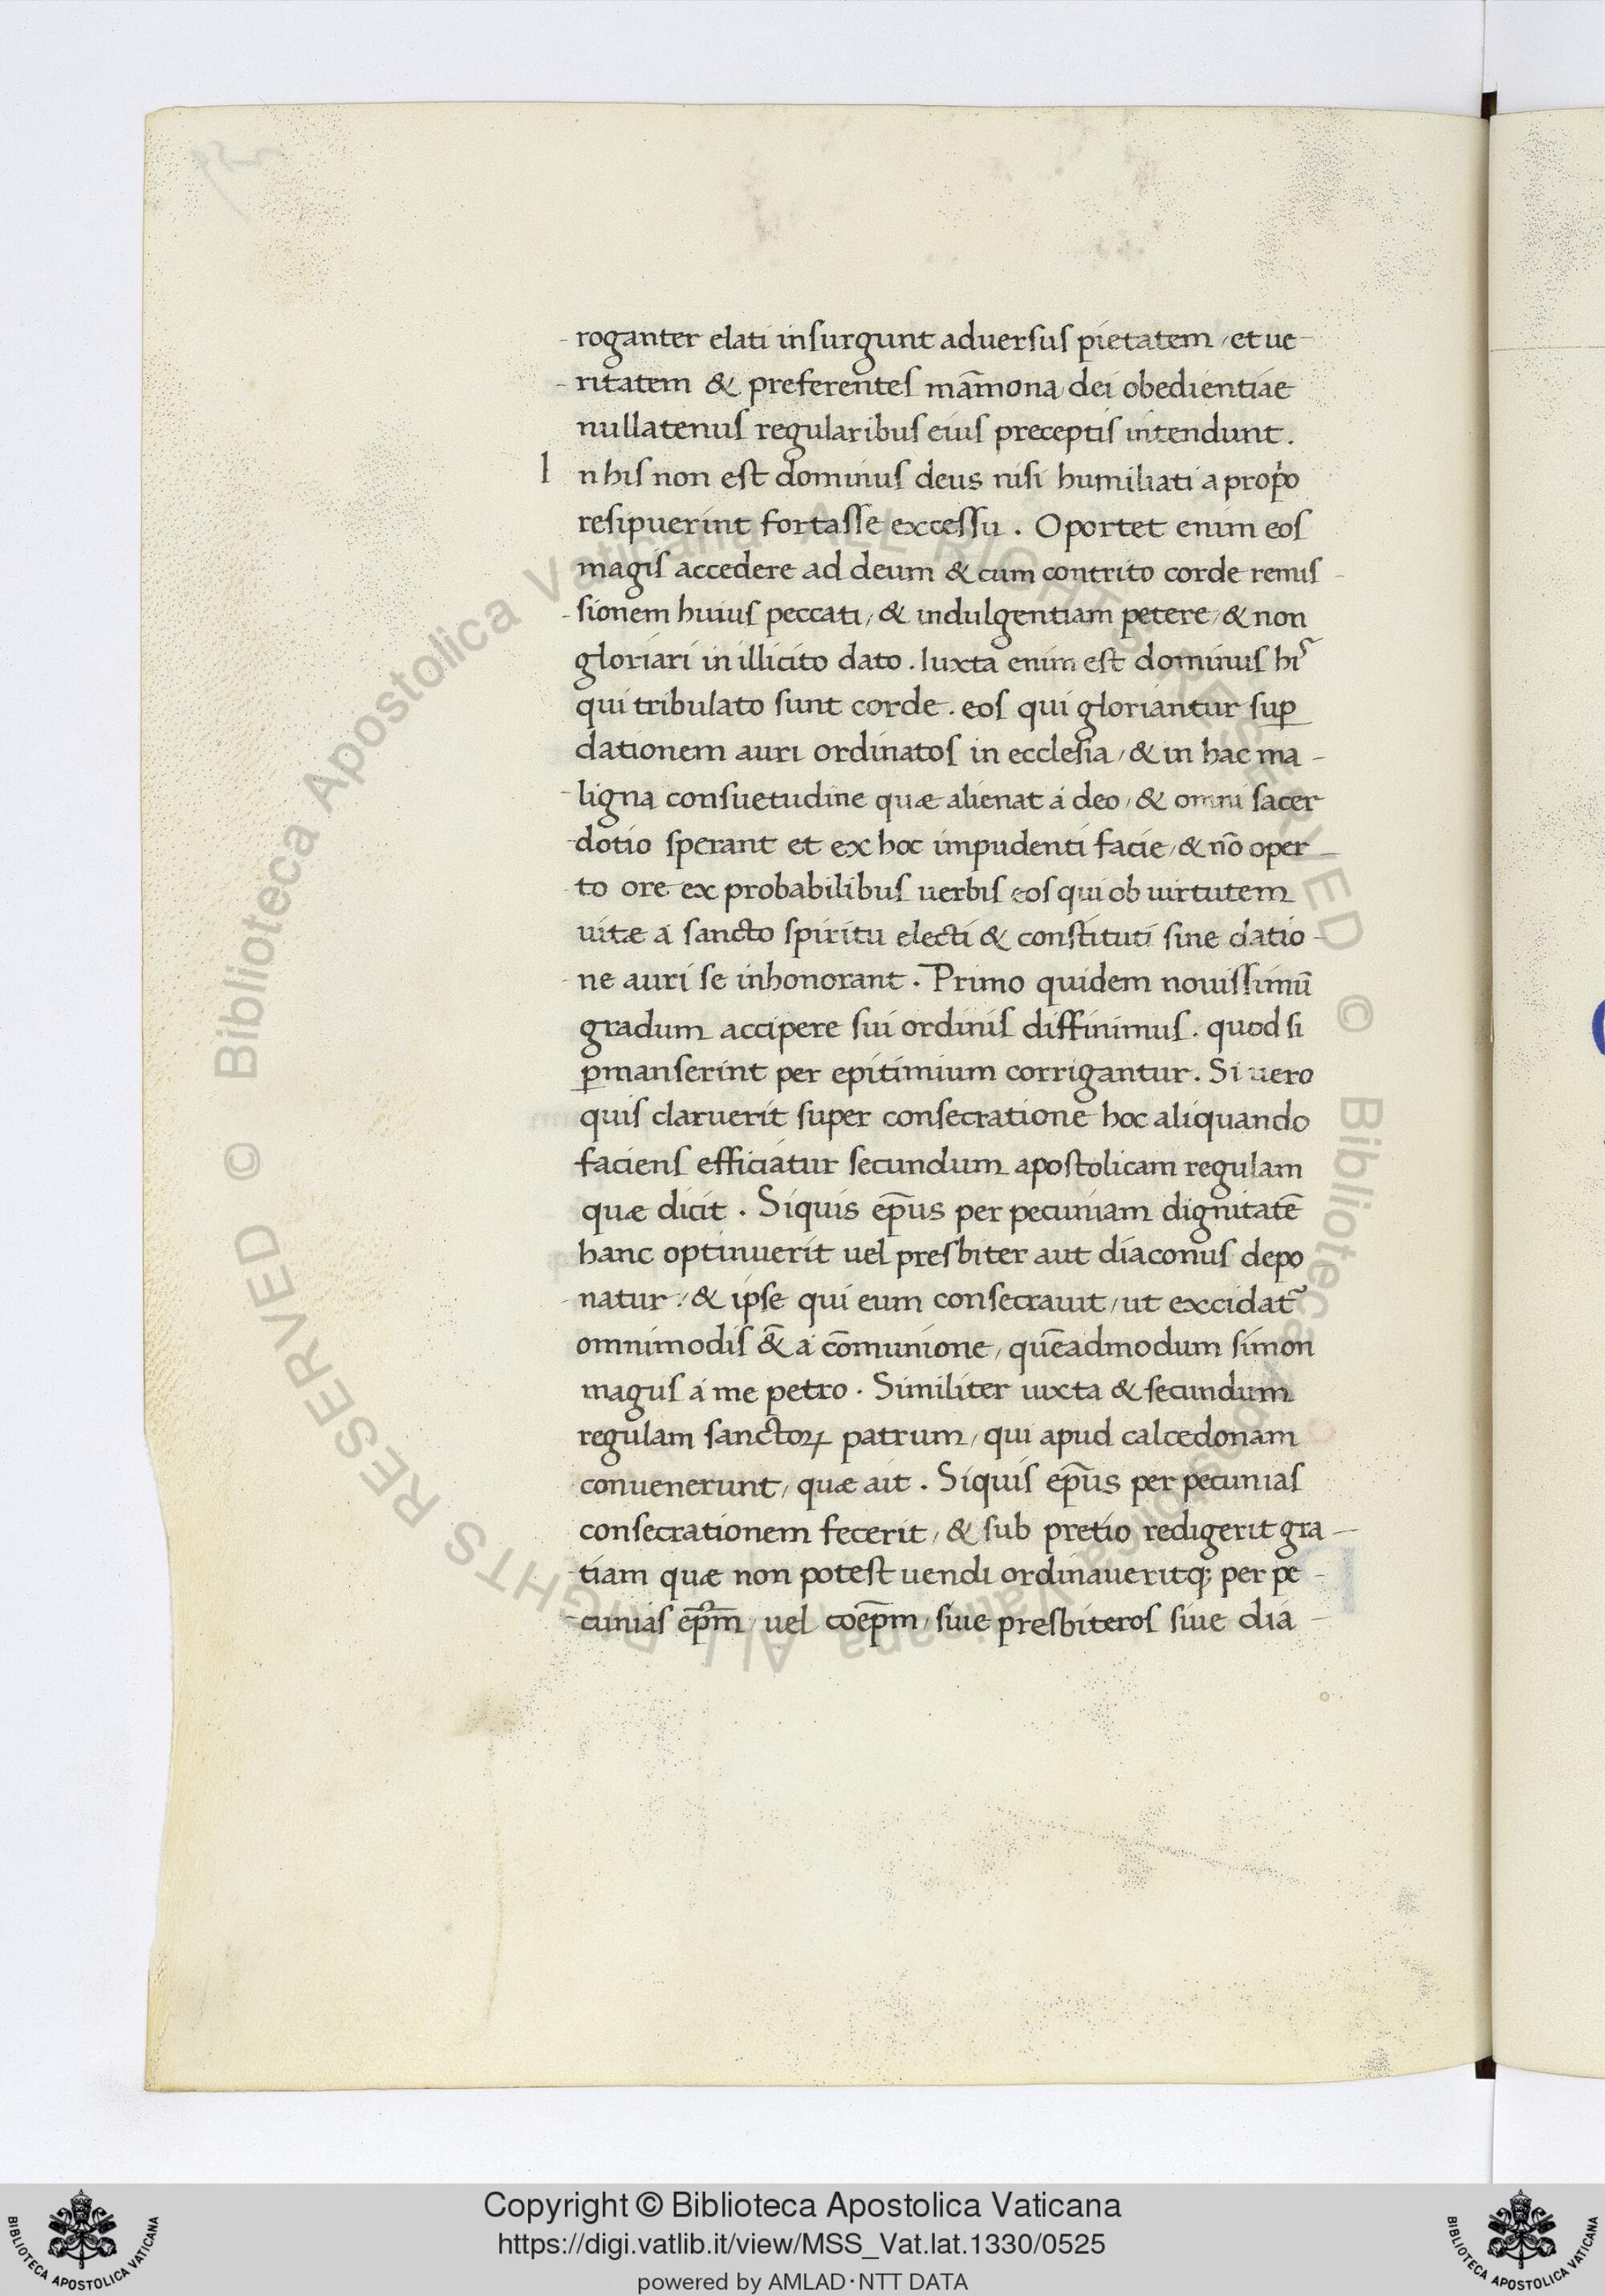 roganter elati insurgunt aduersus pietatem, et ue-
ritatem & preferentes mam̄ona dei obedientiae
nullatenus regularibus eius preceptis intendunt.
In his non est dominus deus nisi humiliati a prop̍o
resipuerint fortasse excessu. Oportet enim eos
magis accedere ad deum & cum contrito corde remis-
sionem huius peccati, & indulgentiam petere, & non
gloriari in illicito dato. Iuxta enim est dominus hiˢ
qui tribulato sunt corde. eos qui gloriantur suꝑ
dationem auri ordinatos in ecclesia, & in hac ma-
ligna consuetudine quæ alienat á deo, & omni sacer
dotio sperant et ex hoc impudenti facie, & nō oper-
to ore ex probabilibus uerbis eos qui ob uirtutem
uitæ á sancto spiritu electi & constituti sine datio-
ne auri se inhonorant. Primo quidem nouissimū
gradum accipere sui ordinis diffinimus. quod si
ꝑmanserint per epitimium corrigantur. Si uero
quis claruerit super consecratione hoc aliquando
faciens efficiatur secundum apostolicam regulam
quæ dicit. Siquis ep̄us per pecuniam dignitatē
hanc optinuerit uel presbiter aut diaconus depo
natur, & ipse qui eum consecrauit, ut excidat᷑
omnimodis &̄ á cōmunione, quēadmodum simon
magus á me petro. Similiter iuxta & secundum
regulam sanctoꝝ patrum, qui apud calcedonam
conuenerunt, quæ ait. Siquis ep̄us per pecunias
consecrationem fecerit, & sub pretio redigerit gra-
tiam quæ non potest uendi ordinaueritq; per pe-
cunias ep̄m, uel coep̄m, siue presbiteros siue dia-
Copyright © Biblioteca Apostolica Vaticana
https://digi.vatlib.it/view/MSS_Vat.lat.1330/0525
powered by AMLAD·NTT DATA
BIBLIOTECA APOSTOLICA VATICANA
BIBLIOTECA APOSTOLICA VATICANA
© Biblioteca Apostolica Vaticana ALL RIGHTS RESERVED © Biblioteca Apostolica Vaticana ALL RIGHTS RESERVED